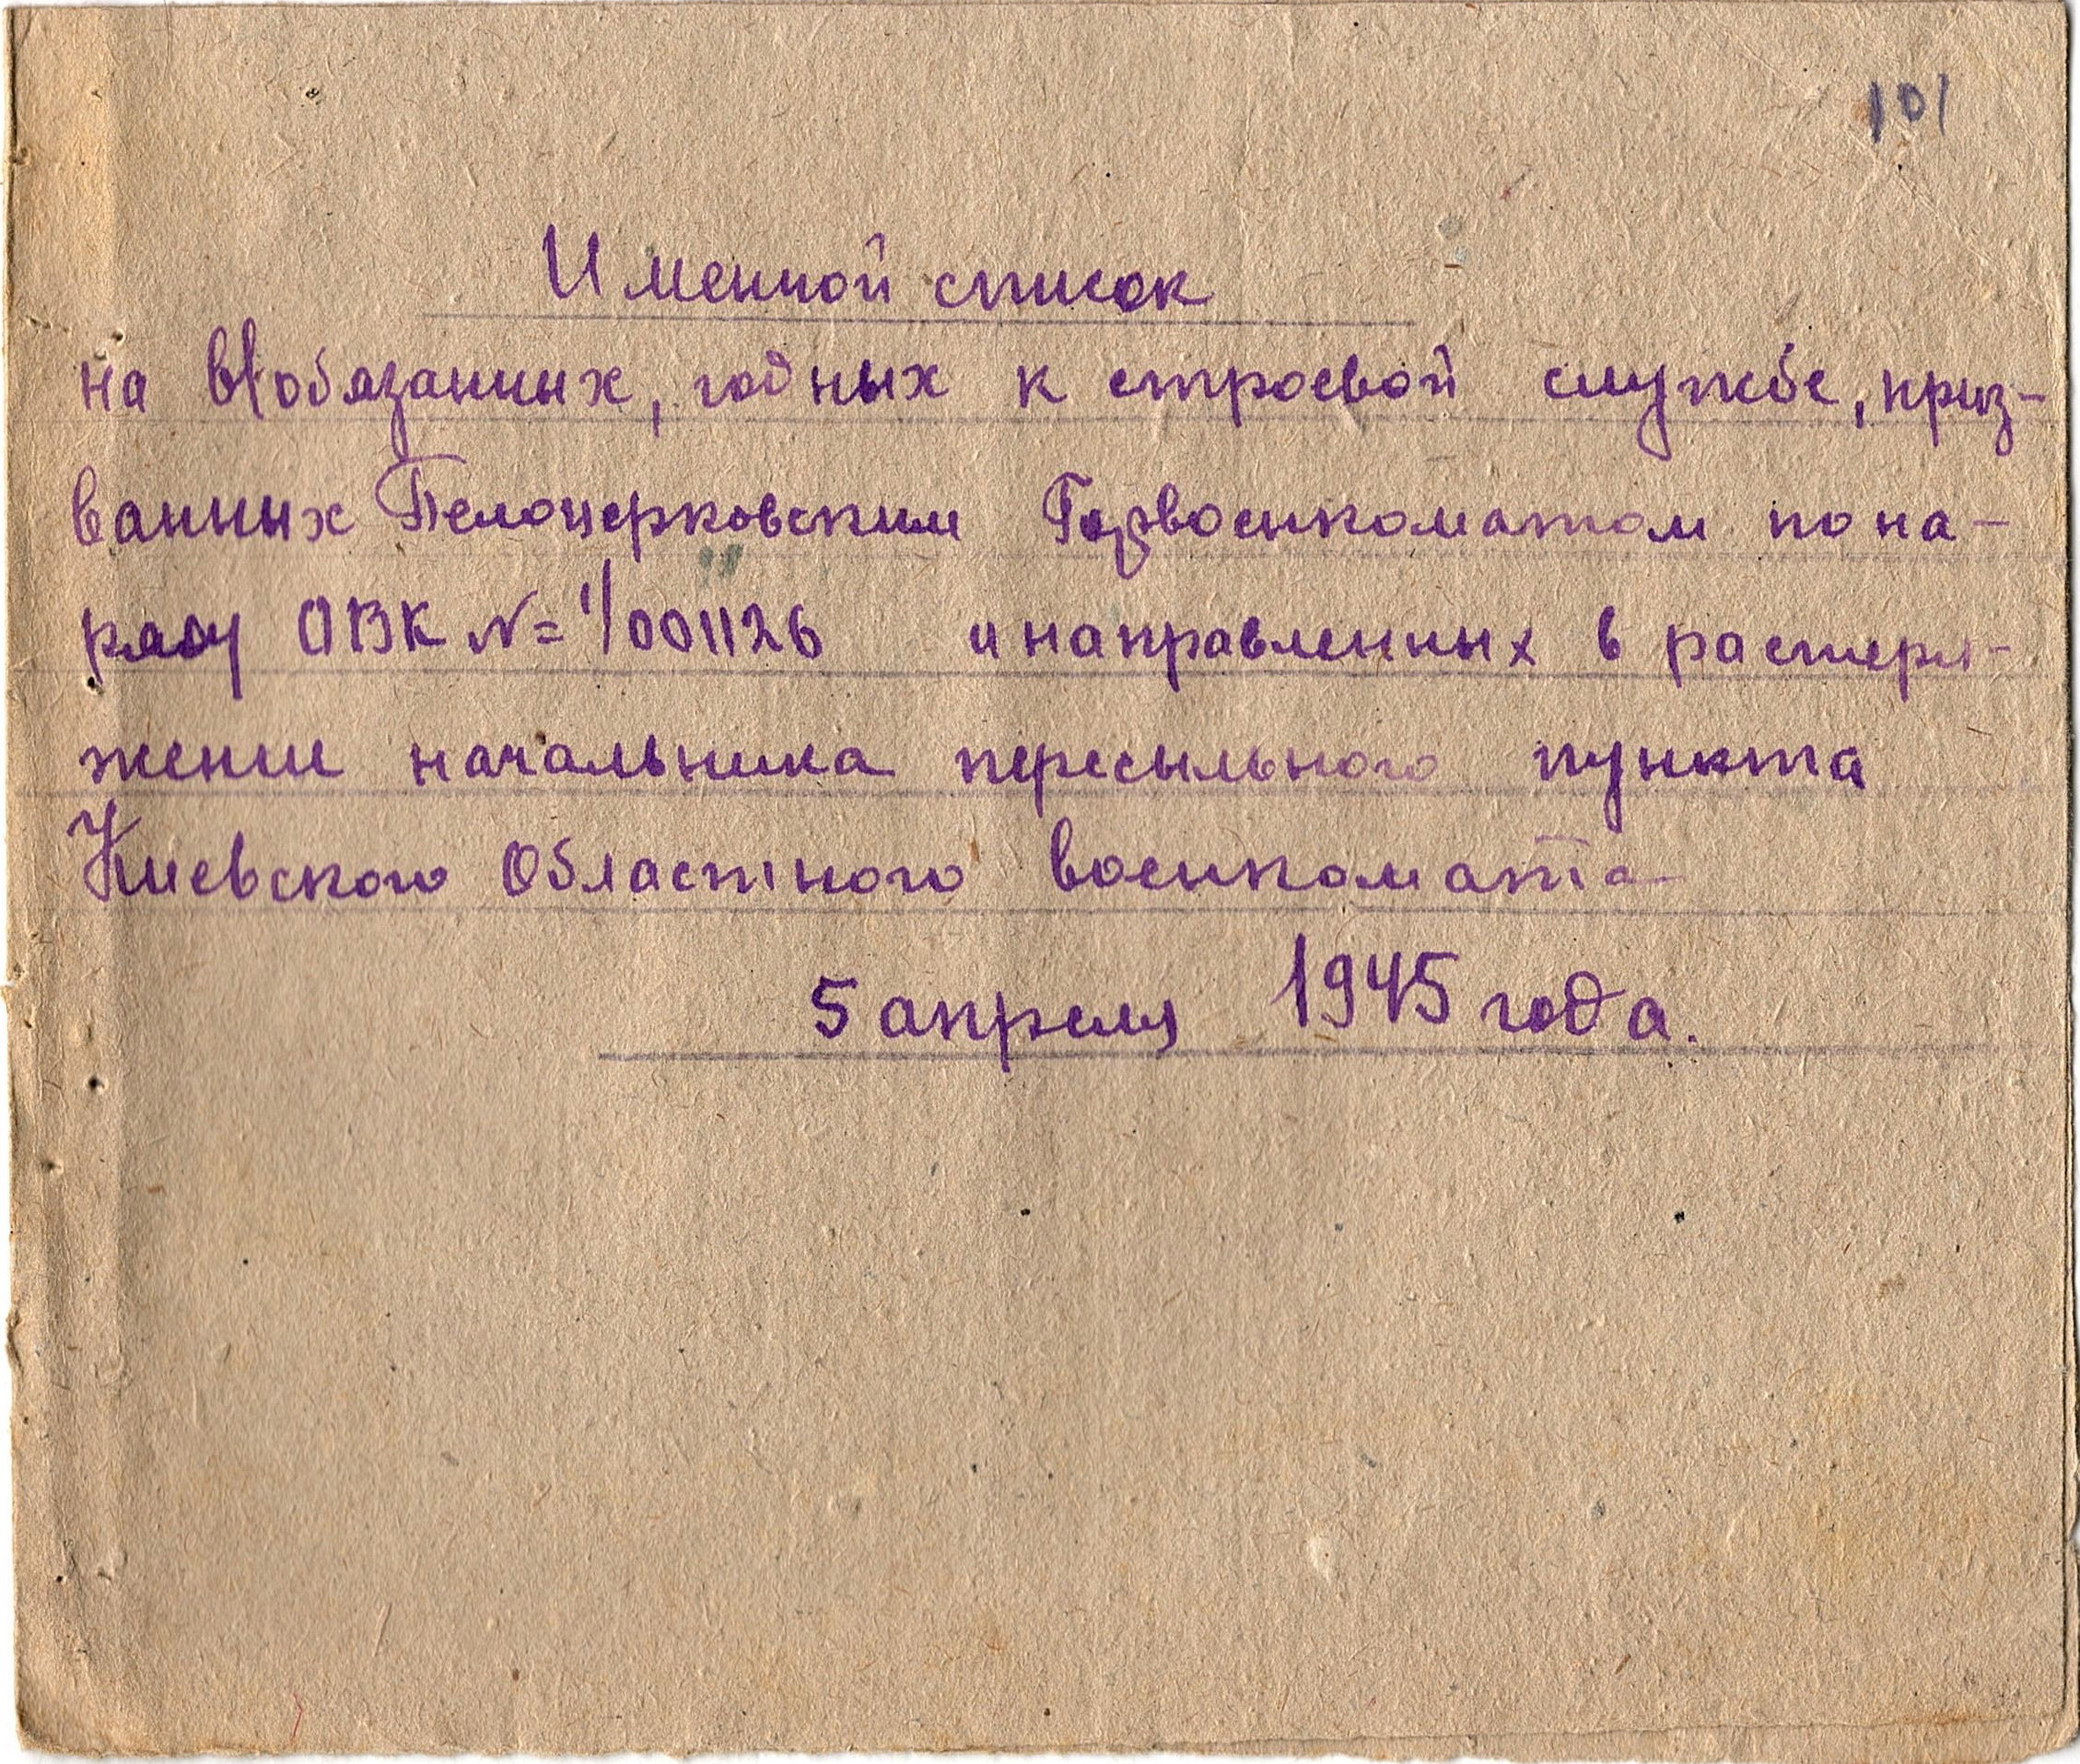 101
Именной список
на в/обязанных, годных к строевой службе, приз-
ванных Белоцерковским Горвоенкоматом по на-
ряду ОВК №=1/001126 и направленных в распоря-
жение начальника пересыльного пункта
Киевского Областного военкомата
5 апреля 1945 года.